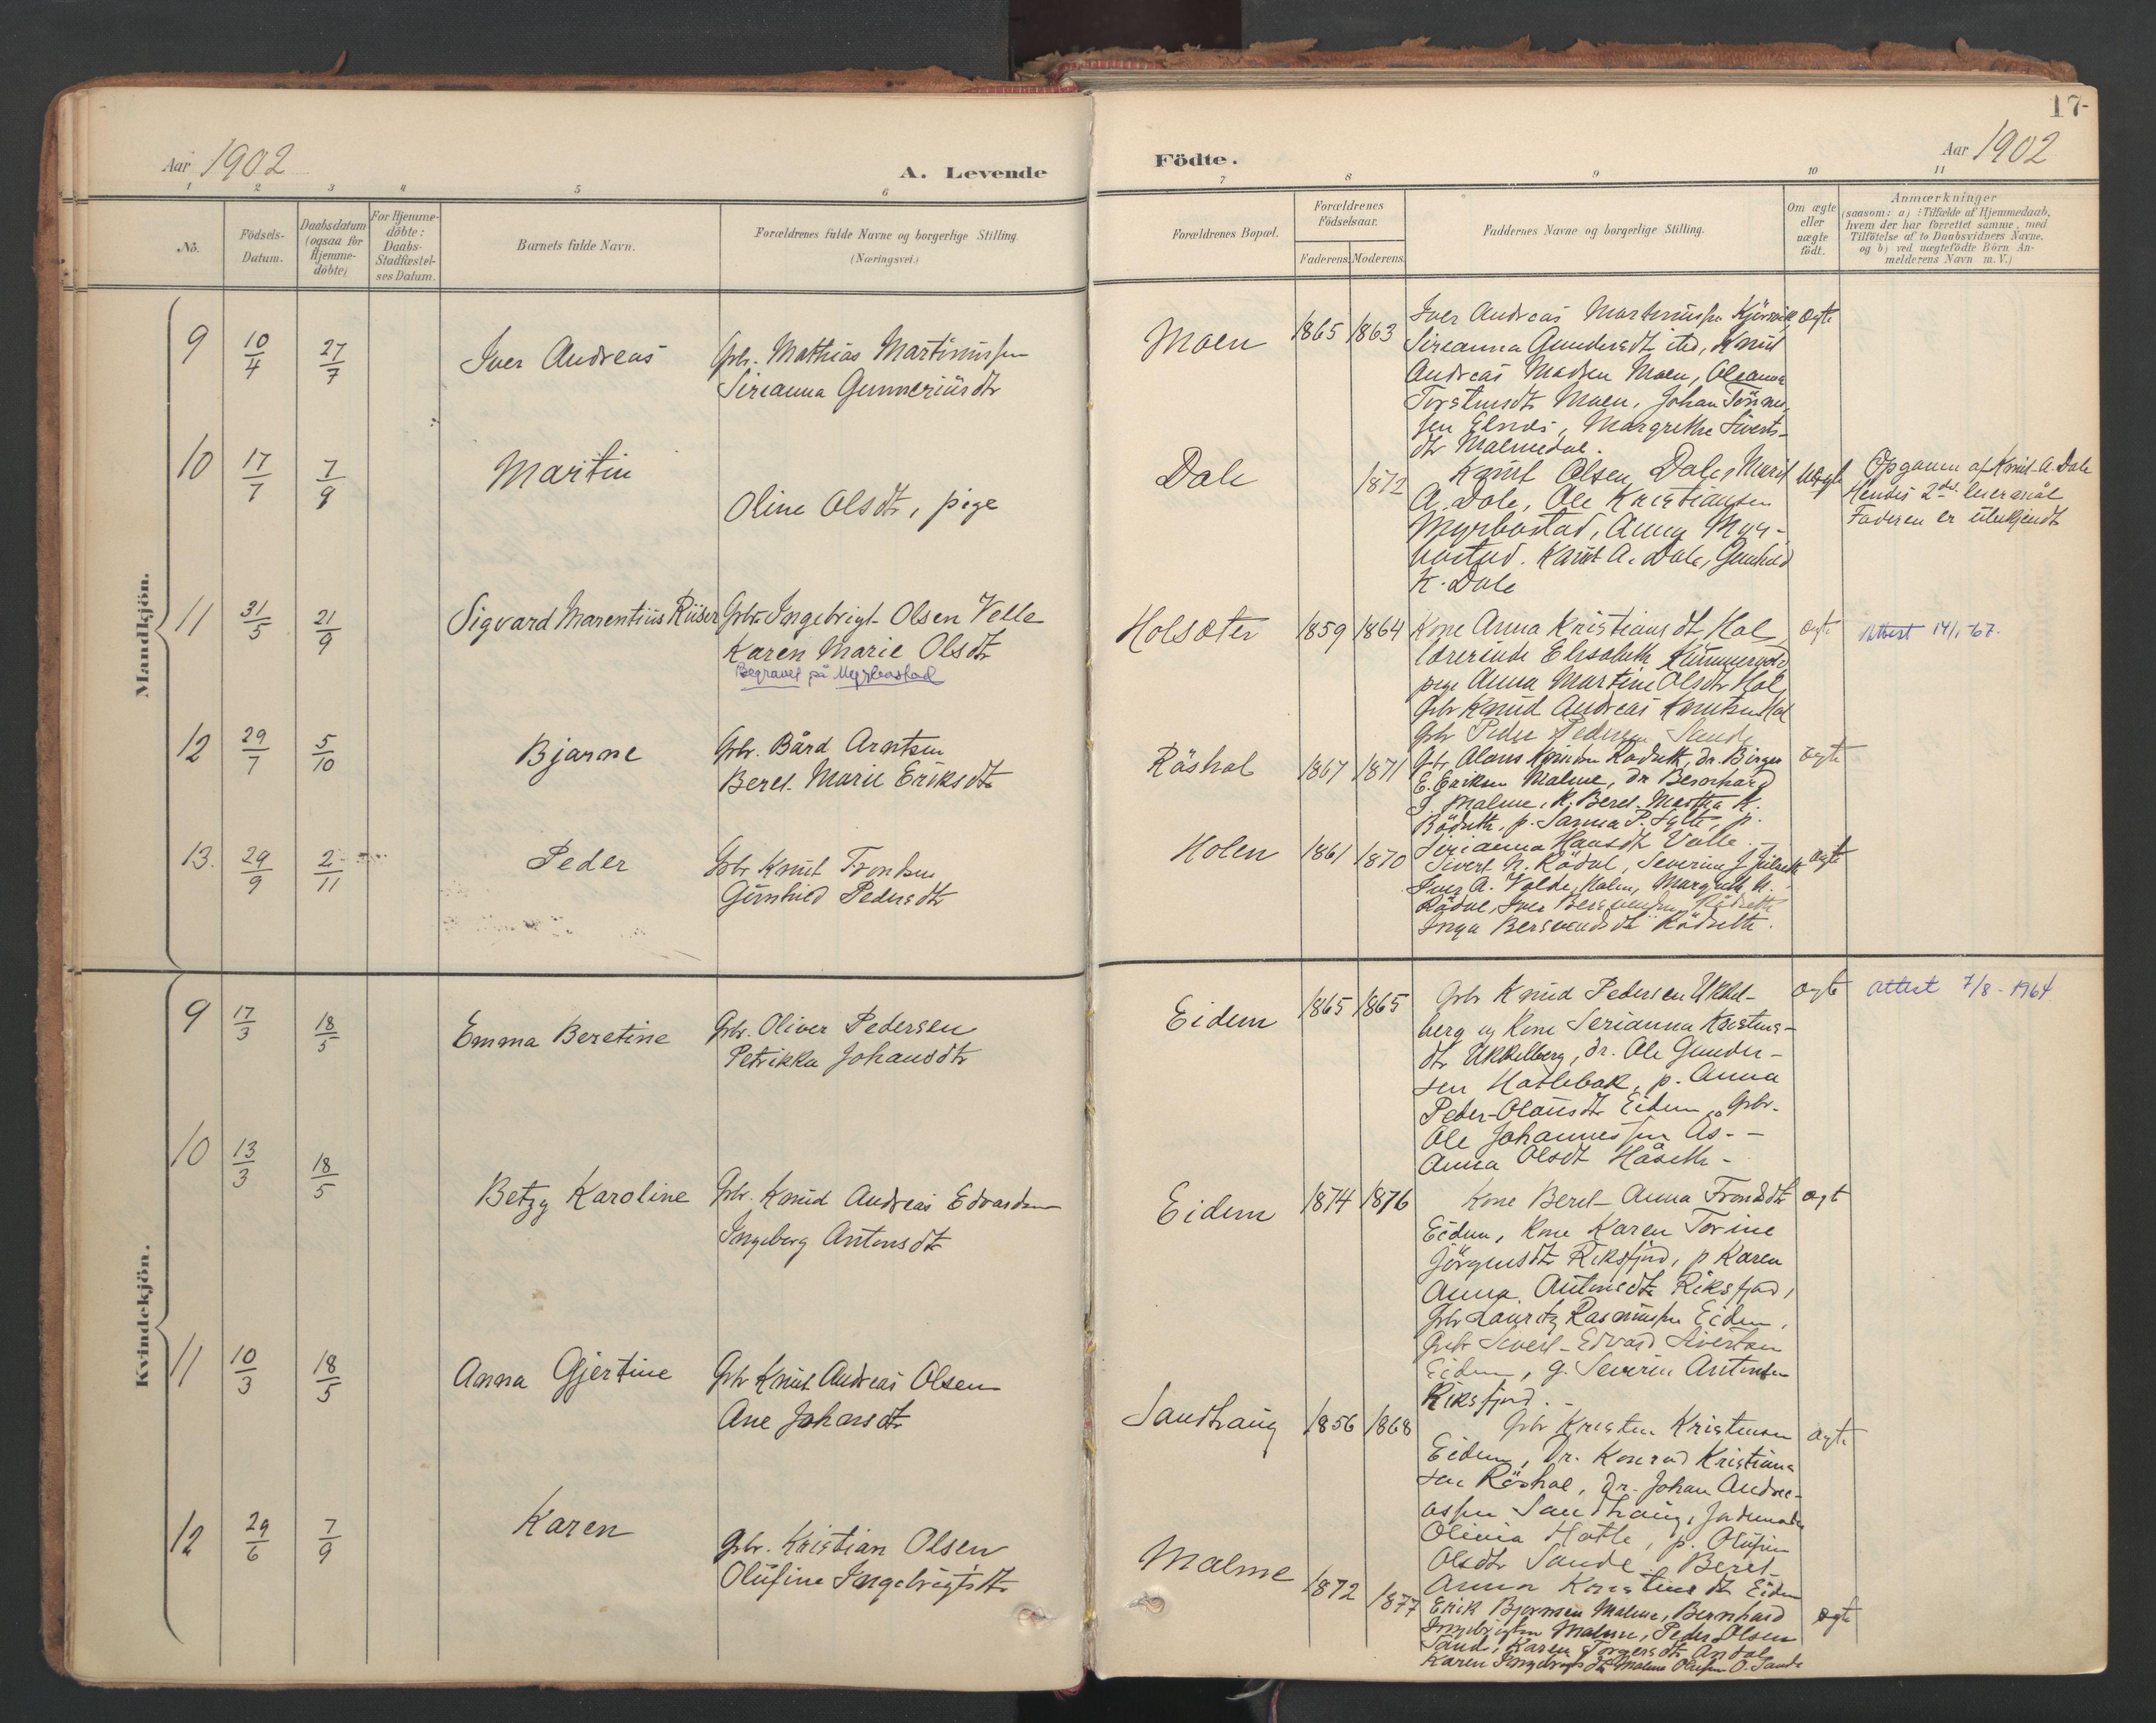 17-
Aar 1902
A. Levende
Födte.
Aar 1902
1 2 3 4 5 6 7 8 9 10 11
No.
Födsels-
Datum.
Daabsdatum
(ogsaa for
Hjemme-
döbte)
For Hjemme-
döbte:
Daabs-
Stadfæstel-
ses Datum.
Barnets fulde Navn.
Forældrenes fulde Navne og borgerlige Stilling.
(Næringsvei.)
Forældrenes Bopæl.
Forældrenes
Födselsaar.
Faderens. Moderens.
Faddernes Navne og borgerlige Stilling.
Om ægte
eller
uægte
födt.
Anmærkninger
(saasom: a) : Tilfælde af Hjemmedaab,
hvem der har forrettet samme, med
Tilföielse af to Daabsvidners Navne,
og b) ved uægtefödte Börn An-
melderens Navn m. V.)
Mandkjön.
9 10/4 27/7 Iver Andreas Gbr. Mathias Martinussen
Sirianna Gunneriusdtr
Moen 1865 1863
Iver Andreas Martinussen ægte
Sirianna Gundersdtr ibd, Knut
Andreas Madsen Moen, Oleanna
Torstensdtr Moen, Johan Tönne-
sen Elnæs, Margrethe Siverts-
dtr Malmedal.
10 17/7 7/9 Martin
Oline Olsdtr, pige
Dale 1872
Knut Olsen Dale, Marit uægte
A. Dale, Ole Kristiansen
Myrbostad, Anna Myr-
bostad. Knut A. Dale, Gunhild
K. Dale
Opgaven af Knut A. Dale
Hendes 2det leiermål
Faderen er ubekjendt
11 31/5 21/9 Sigvard Marentius Riiser Gbr. Ingebrigt Olsen Velle
Karen Marie Olsdtr
Begravet på Myrbostad
Holsæter 1859 1864
Kone Anna Kristiansdtr Hol, ægte
lærerinde Elisabeth
pige Anna Martine Olsdtr Hol,
Gbr Knud Andreas Knutsen Hol
Gbr Peder Pedersen Sande
Attest 14/1-67.
12 29/7 5/10 Bjarne Gbr. Bård Arntsen
Beret Marie Eriksdtr
Röshol 1867 1871
ægte
E. Eriksen Malme, dr Bernhard
Malme, K. Beret Martha K.
Rödseth, p. Sanna P. Sylte, p.
Sirianna Hansdtr Valle
13. 29/9 2/11 Peder Gbr Knut Trondsen
Gunhild Pedersdtr
Holen 1861 1870
Sivert N. Rödal, Severine J. ægte
Iver A. Volde, Holen, Margreth
Rödal, Iver Rödseth
Inga Rödseth.
Kvindekjön.
9 17/3 18/5 Emma Beretine Gbr. Oliver Pedersen
Petrikka Johansdtr
Eidem 1865 1865
Gbr Knud Pedersen Ukkel- ægte
berg og Kone Serianna Kristens-
dtr Ukkelberg, dr. Ole Gunder-
sen Hatlebak, p. Anna
Peder-Olausdtr Eidem, Gbr.
Ole Johannessen Ås. -
Anna Olsdtr Håseth -
Attest 7/8 - 1964
10 13/3 18/5 Betzy Karoline Gbr. Knud Andreas Edvardsen
Ingeberg Antonsdtr
Eidem 1874 1876
Kone Beret-Anna Trondsdtr ægt
Eidem, Kone Karen Torine
Jörgensdtr Riksfjord, p Karen
Anna Antonsdtr Riksfjord,
Gbr Lauritz Rasmussen Eidem,
Gbr Sivert-Edvard Sivertsen
Eidem, g. Severin Antonsen
Riksfjord.
11 10/3 18/5 Anna Gjertine Gbr Knut Andreas Olsen
Ane Johansdtr
Sandhaug 1856 1868
Gbr Kristen Kristensen ægte
Eidem, Dr. Konrad Kristian-
sen Röshol, Dr. Johan Andre-
assen Sandhaug, Jordemoder
Olivia Hatle, p. Olufine
Olsdtr Sande, Beret-
Anna Kristensdtr Eidem
12 29/6 7/9 Karen Gbr. Kristian Olsen
Olufine Ingebrigtsdtr
Malme 1872 1877
Erik Bjørnsen Malme, Bernhard ægte
Ingebrigtsen Malme, Peder Olsen
Sande, Karen Torgersdtr
Karen Ingebrigtsdtr Malme O. Sande